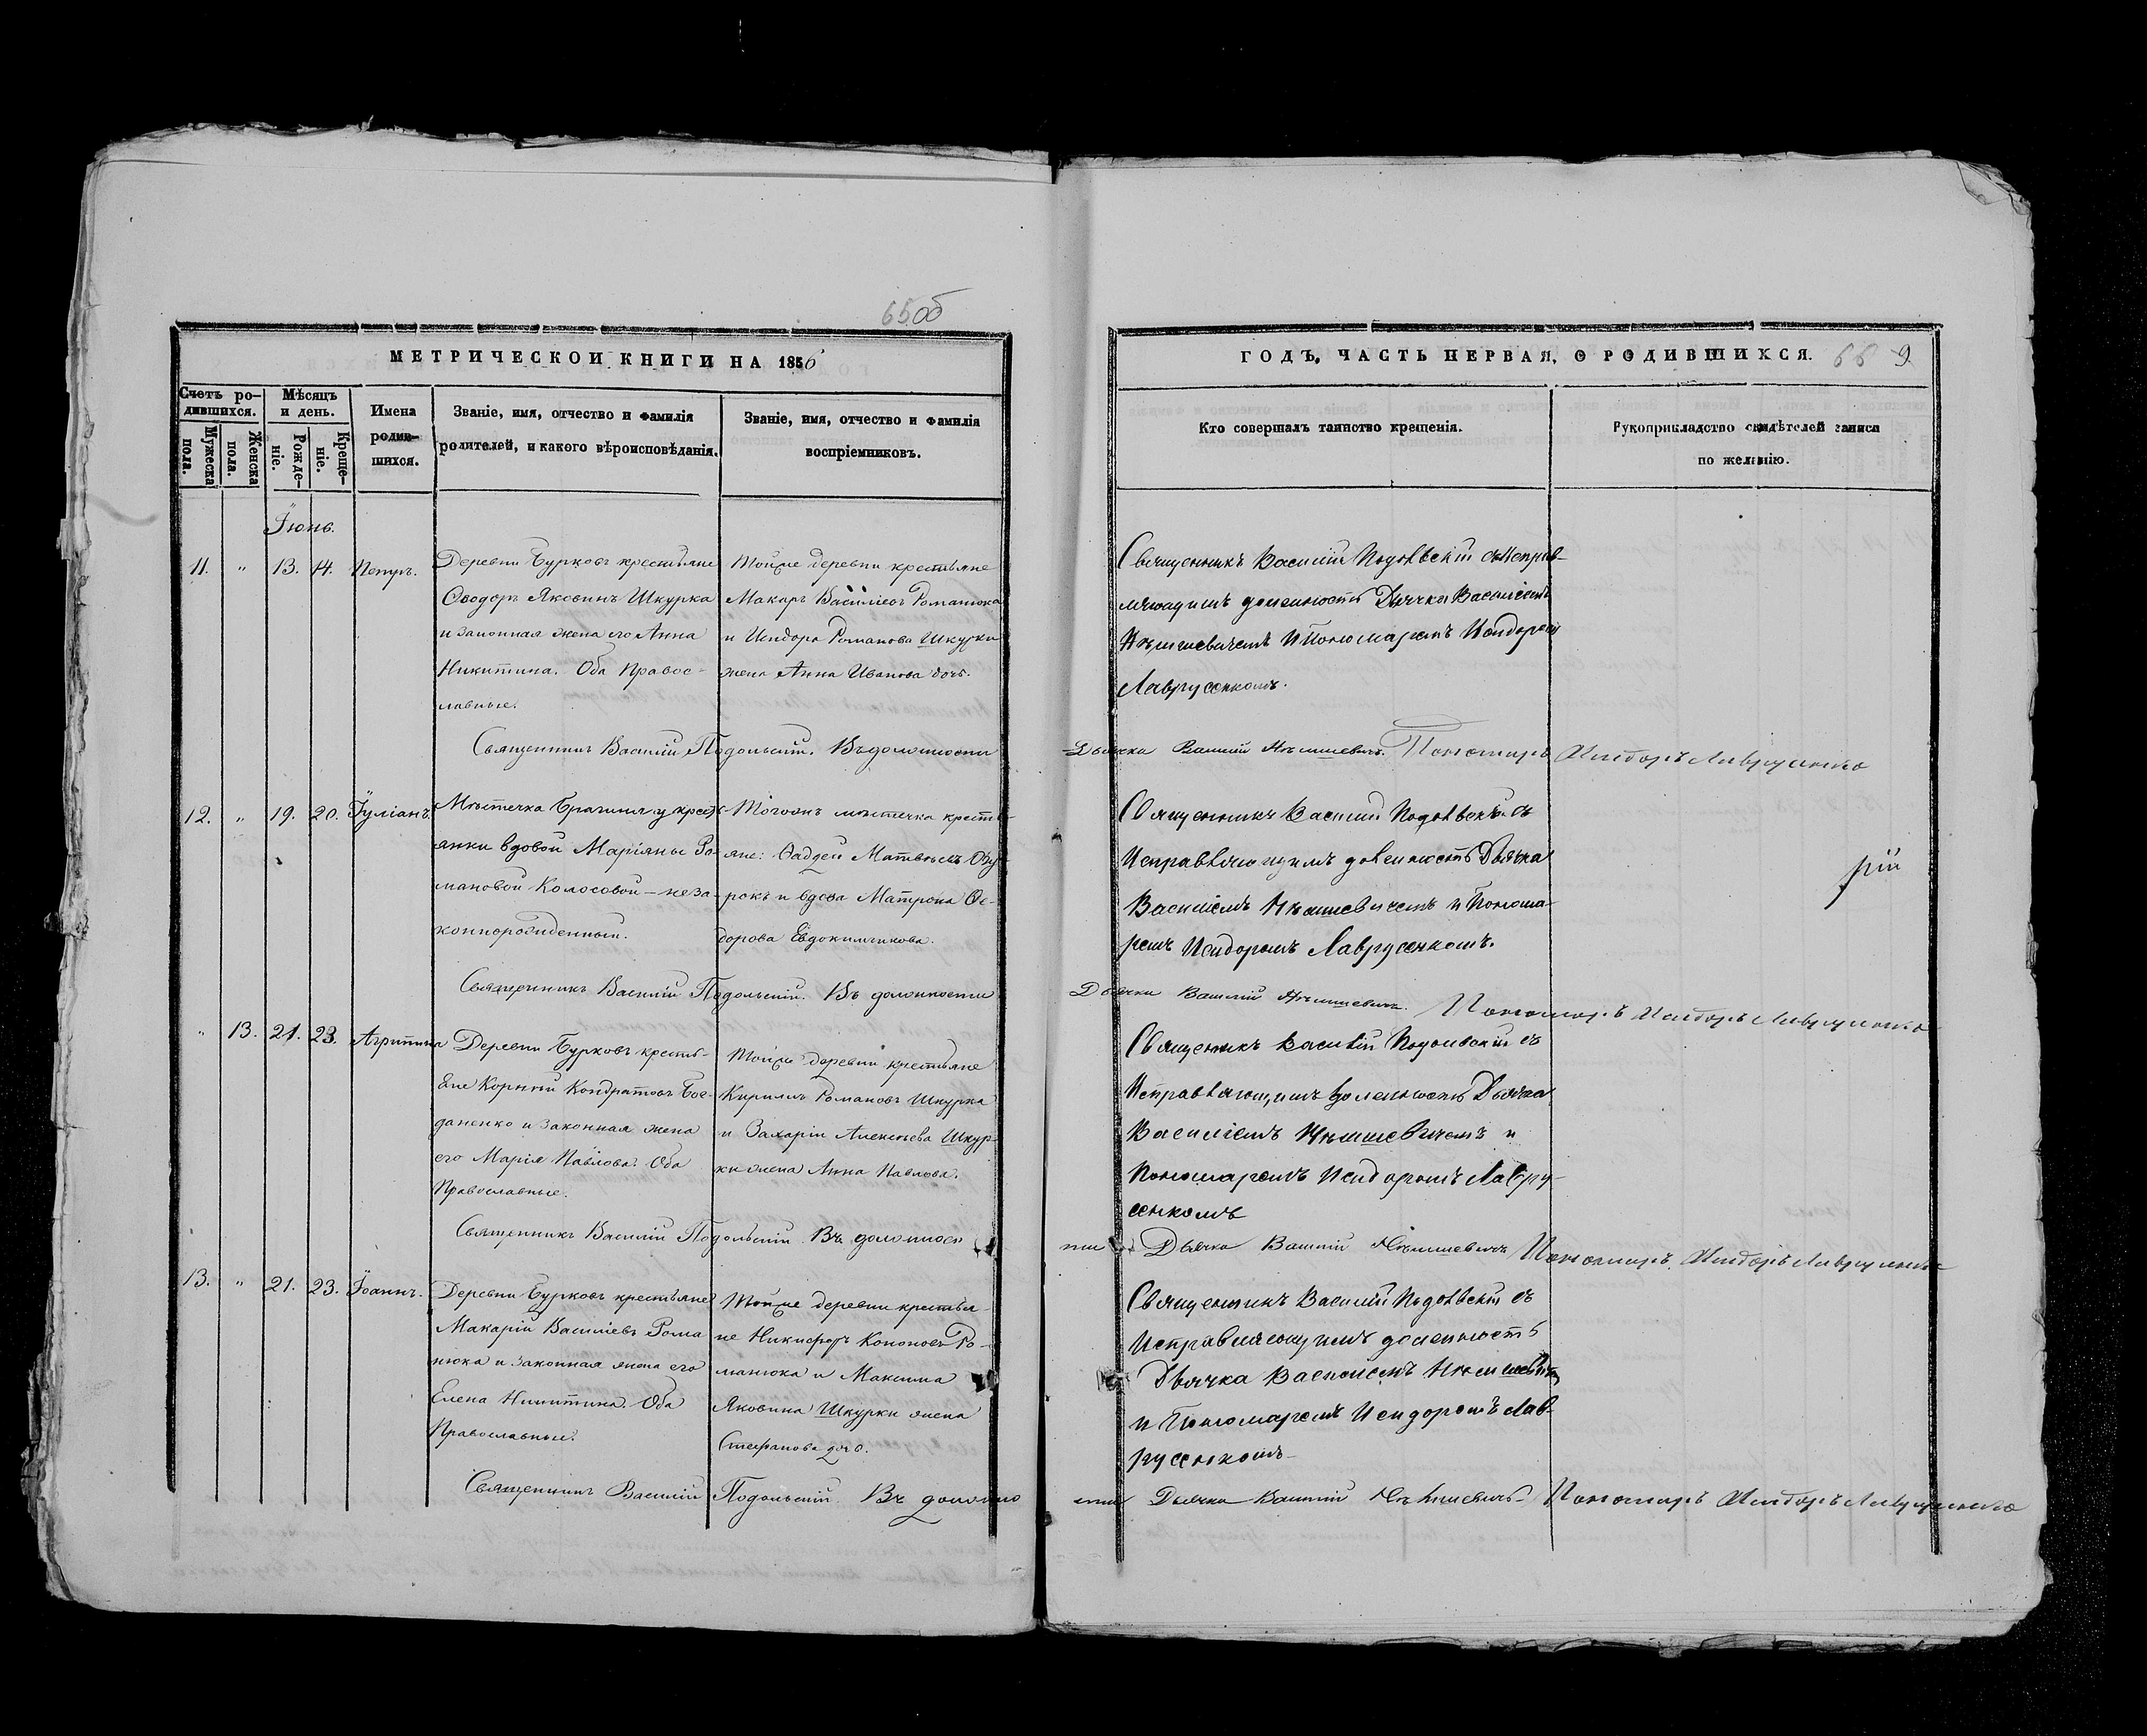 65об
МЕТРИЧЕСКОИ КНИГИ НА 1856
Счетъ ро-
дившихся.
Мѣсяцъ
и день.
Имена
родив-
шихся.
Званіе, имя, отчество и фамилія
родителей, и какого вѣроисповѣданія.
Званіе, имя, отчество и фамилія
воспріемниковъ.
Мужеска
пола.
Женска
пола.
Рожде-
ніе.
Креще-
ніе.
Іюнь.
11. " 13. 14. Петръ.
Деревни Бурковъ крестьяне
Ѳеодоръ Яковинъ Шкурка
и законная жена его Анна
Никитина. Оба Правос-
лавные.
Тойже деревни крестьяне
Макаръ Василіевъ Романюка
и Исидора Романова Шкурки
жена Анна Иванова дочь.
Священникъ Василій Подольскій. Въ должности
12. " 19. 20. Іуліанъ.
Мѣстечка Брагиня у крест-
янки вдовой Маріяны Ро-
мановой Колосовой – неза-
коннорожденный.
Тогожъ мѣстечка кресть-
яне: Ѳаддей Матвѣевъ
и вдова Матрона Ѳе-
дорова Евдокимчикова.
Священникъ Василій Подольскій. Въ должности
" 13. 21. 23. Агрипина
Деревни Бурковъ кресть-
яне Корнѣй Кондратовъ Бог-
даненко и законная жена
его Марія Павлова. Оба
Православные.
Тойже деревни крестьяне
Кирилъ Романовъ Шкурка
и Захарія Алексѣева Шкур-
ки жена Анна Павлова.
Священникъ Василій Подольскій. Въ должнос
13. " 21. 23. Іоаннъ.
Деревни Бурковъ крестьяне
Макарій Василіевъ Рома
нюка и законная жена его
Елена Никитина. Оба
Православные.
Тойже деревни крестья-
не Никифоръ Кононовъ Ро-
манюка и Максима
Яковина Шкурки жена
Стефанова дочь.
Священникъ Василій Подольскій. Въ должно
ГОДЪ, ЧАСТЬ ПЕРВАЯ, О РОДИВШИХСЯ. 66 9.
Кто совершалъ таинство крещенія.
Рукоприкладство свидѣтелей записи
по желанію.
Священникъ Василій Подольскій съ Исправ-
ляющимъ должность Дьячка Василіемъ
Нѣмшевичемъ и Пономаремъ Исидоромъ
Лаврусенкомъ.
Дьячка Василій Нѣмшевичъ. Пономарь Исидоръ Лаврусенко
Священникъ Василій Подольскій съ
Исправляющимъ должность Дьячка
Василіемъ Нѣмшевичемъ и Понома-
ремъ Исидоромъ Лаврусенкомъ.
рій
Дьячка Василій Нѣмшевичъ. Пономарь Исидоръ Лаврусенко
Священникъ Василій Подольскій съ
Исправляющимъ должность Дьячка
Василіемъ Нѣмшевичемъ и
Пономаремъ Исидоромъ Лавру-
сенкомъ
ти Дьячка Василій Нѣмшевичъ Пономарь Исидоръ Лаврусенко
Священникъ Василій Подольскій съ
Исправляющимъ должность
Дьячка Василіемъ Нѣмшевичемъ
и Пономаремъ Исидоромъ Лав-
русенкомъ
сти Дьячка Василій Нѣмшевичъ Пономарь Исидоръ Лаврусенко